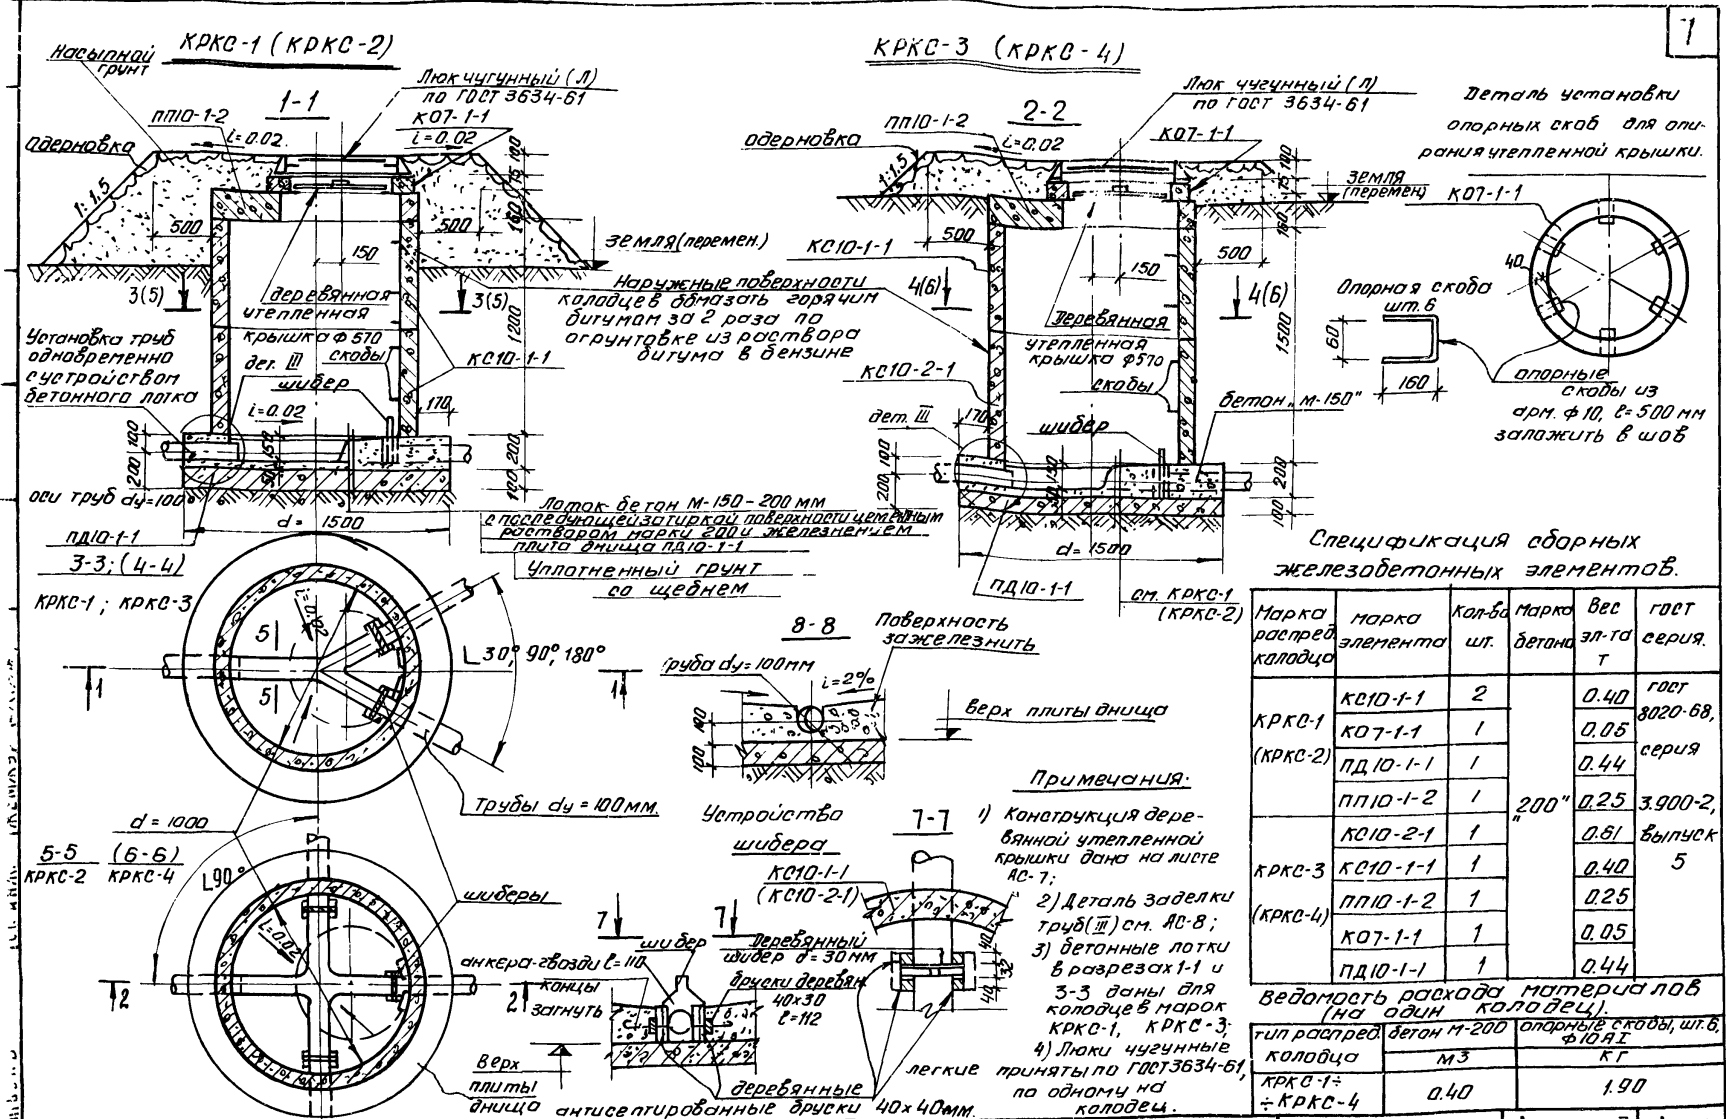 1
КРКС-1 (КРКС-2)
Насыпной
грунт
1-1
Люк чугунный (Л)
по ГОСТ 3634-61
ПП10-1-2
КО7-1-1
i=0.02
i=0.02
одерновка
1:1,5
500
500
150
100
75
160
1200
земля (перемен.)
3(5)
3(5)
деревянная
утепленная
крышка ф570
скобы
дет. III
шибер
КС10-1-1
Установка труб
одновременно
с устройством
бетонного лотка
i=0.02
170
100
200
150
50
200
100
оси труб dу=100
d=1500
ПД10-1-1
Наружные поверхности
колодцев обмазать горячим
битумом за 2 раза по
огрунтовке из раствора
битума в бензине
Лоток-бетон М-150-200 мм
с последующей затиркой поверхности цементным
раствором марки 200 и железнением
плита днища ПД10-1-1
Уплотненный грунт
со щебнем
КРКС-3 (КРКС-4)
2-2
Люк чугунный (Л)
по ГОСТ 3634-61
ПП10-1-2
КО7-1-1
одерновка
i=0.02
1:1,5
100
75
160
1500
земля
(перемен)
500
500
150
КС10-1-1
4(6)
4(6)
Деревянная
утепленная
крышка ф570
КС10-2-1
скобы
бетон „М-150"
дет. III
170
шибер
100
200
150
50
200
100
d=1500
ПД10-1-1
см. КРКС-1
(КРКС-2)
Деталь установки
опорных скоб для опи-
рания утепленной крышки.
КО7-1-1
40
Опорная скоба
шт. 6
60
160
опорные
скобы из
арм. ф10, ℓ=500 мм
заложить в шов
3-3; (4-4)
КРКС-1; КРКС-3
i=0.02
5
5
∟30°, 90°, 180°
1
1
Трубы dу=100мм.
d=1000
5-5 (6-6)
КРКС-2 КРКС-4
∟90°
i=0.02
шиберы
2
2
Верх
плиты
днища
8-8
Поверхность
зажелезнить
Труба dу=100мм
i=2%
100
100
Верх плиты днища
Устройство
шибера
7-7
КС10-1-1
(КС10-2-1)
7
7
шибер
Деревянный
шибер d=30мм
анкера-гвозди ℓ=110
концы
загнуть
бруски деревян.
40×30
ℓ=112
40
32
40
деревянные
антисептированные бруски 40×40мм.
Примечания:
1) Конструкция дере-
вянной утепленной
крышки дана на листе
АС-7;
2) Деталь заделки
труб (III) см. АС-8;
3) бетонные лотки
в разрезах 1-1 и
3-3 даны для
колодцев марок
КРКС-1, КРКС-3;
4) Люки чугунные
легкие приняты по ГОСТ 3634-61,
по одному на
колодец.
Спецификация сборных
железобетонных элементов.
Марка распред. колодца марка элемента Кол-во шт. Марка бетона Вес эл-та т ГОСТ серия.
КРКС-1 (КРКС-2) КС10-1-1 2 „200" 0.40 ГОСТ 8020-68, серия 3.900-2, Выпуск 5
КО7-1-1 1 0.05
ПД10-1-1 1 0.44
ПП10-1-2 1 0.25
КРКС-3 (КРКС-4) КС10-2-1 1 0.61
КС10-1-1 1 0.40
ПП10-1-2 1 0.25
КО7-1-1 1 0.05
ПД10-1-1 1 0.44
Ведомость расхода материалов
(на один колодец).
тип распред. колодца бетон М-200 м3 опорные скобы, шт.6, ф10АI кг
КРКС-1÷ ÷КРКС-4 0.40 1.90